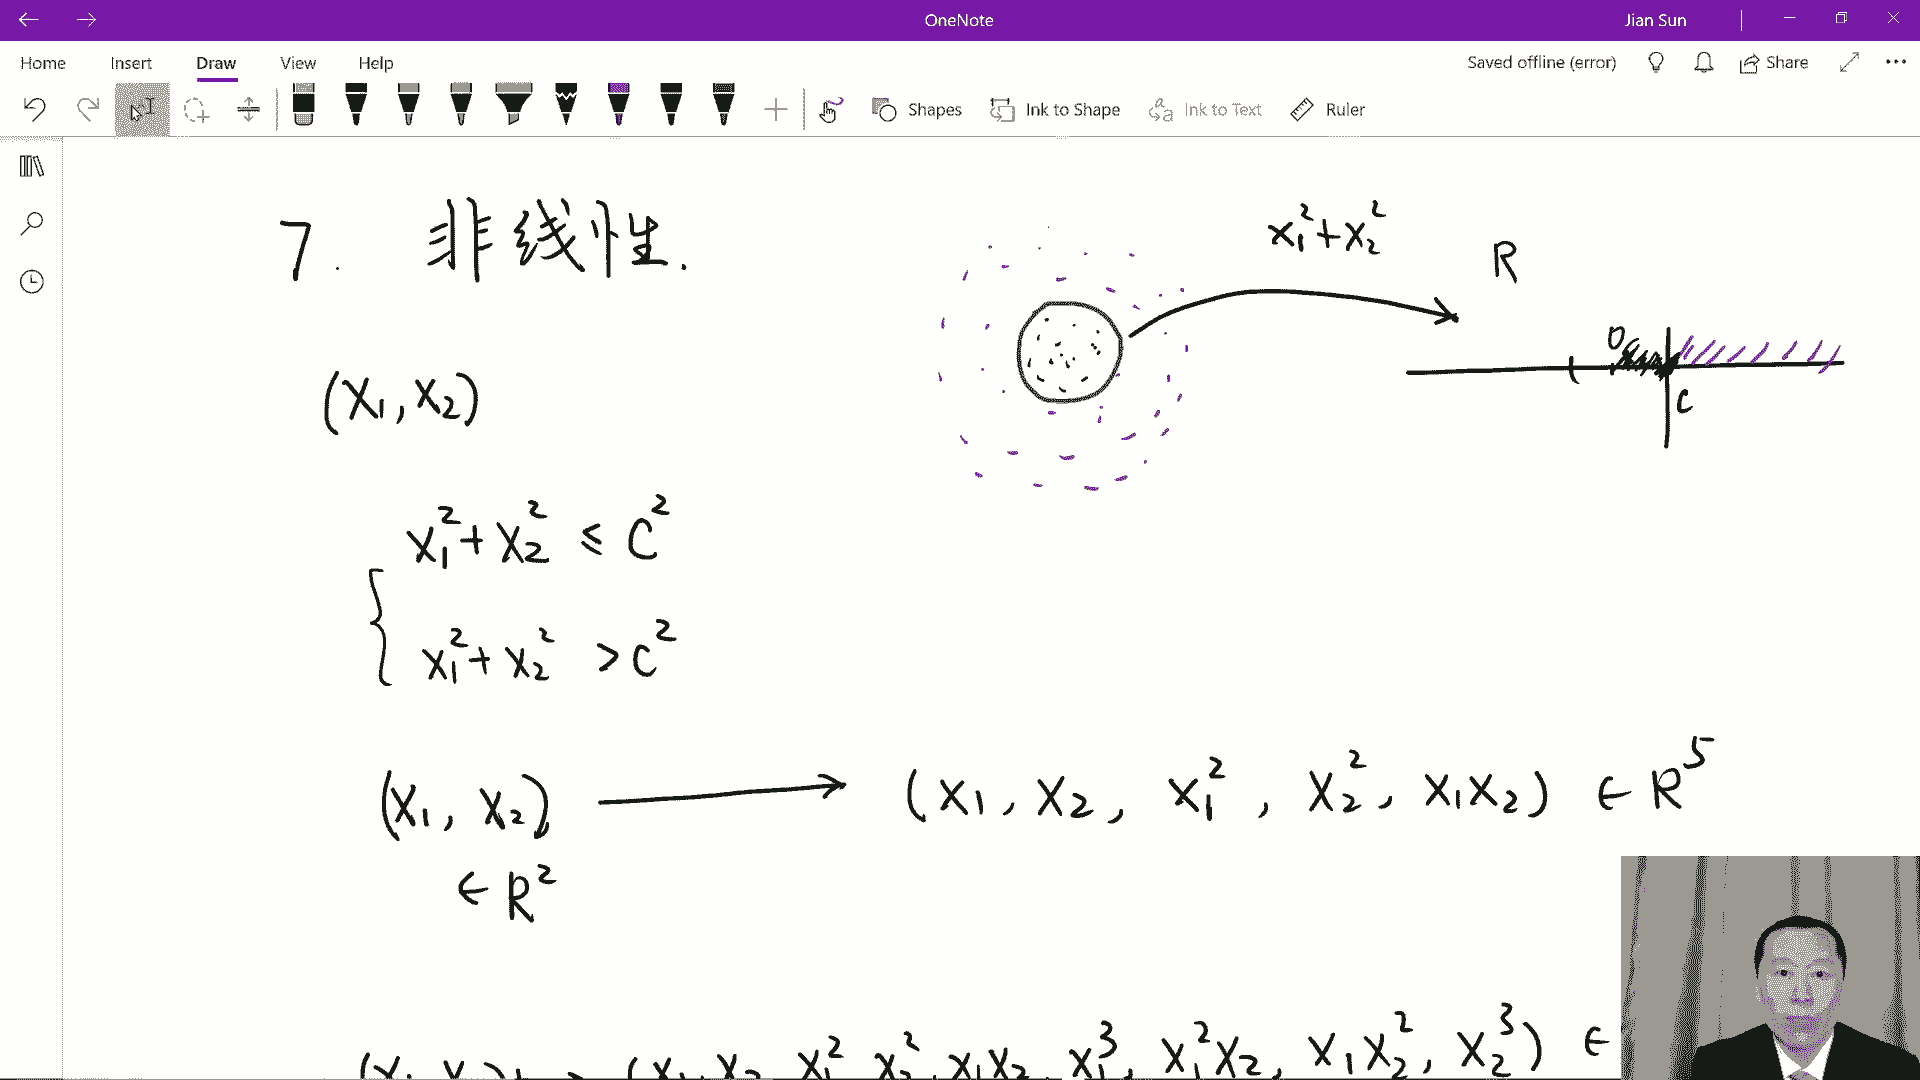 OneNote
Jian Sun
Home Insert Draw View Help
Saved offline (error) Share
Shapes Ink to Shape Ink to Text Ruler
7. 非线性.
x₁²+x₂²
R
0
C
(x₁, x₂)
x₁²+x₂² ≤ C²
x₁²+x₂² > C²
(x₁, x₂) → (x₁, x₂, x₁², x₂², x₁x₂) ∈ R⁵
∈ R²
(x₁, x₂) → (x₁, x₂, x₁², x₂², x₁x₂, x₁³, x₁²x₂, x₁x₂², x₂³) ∈